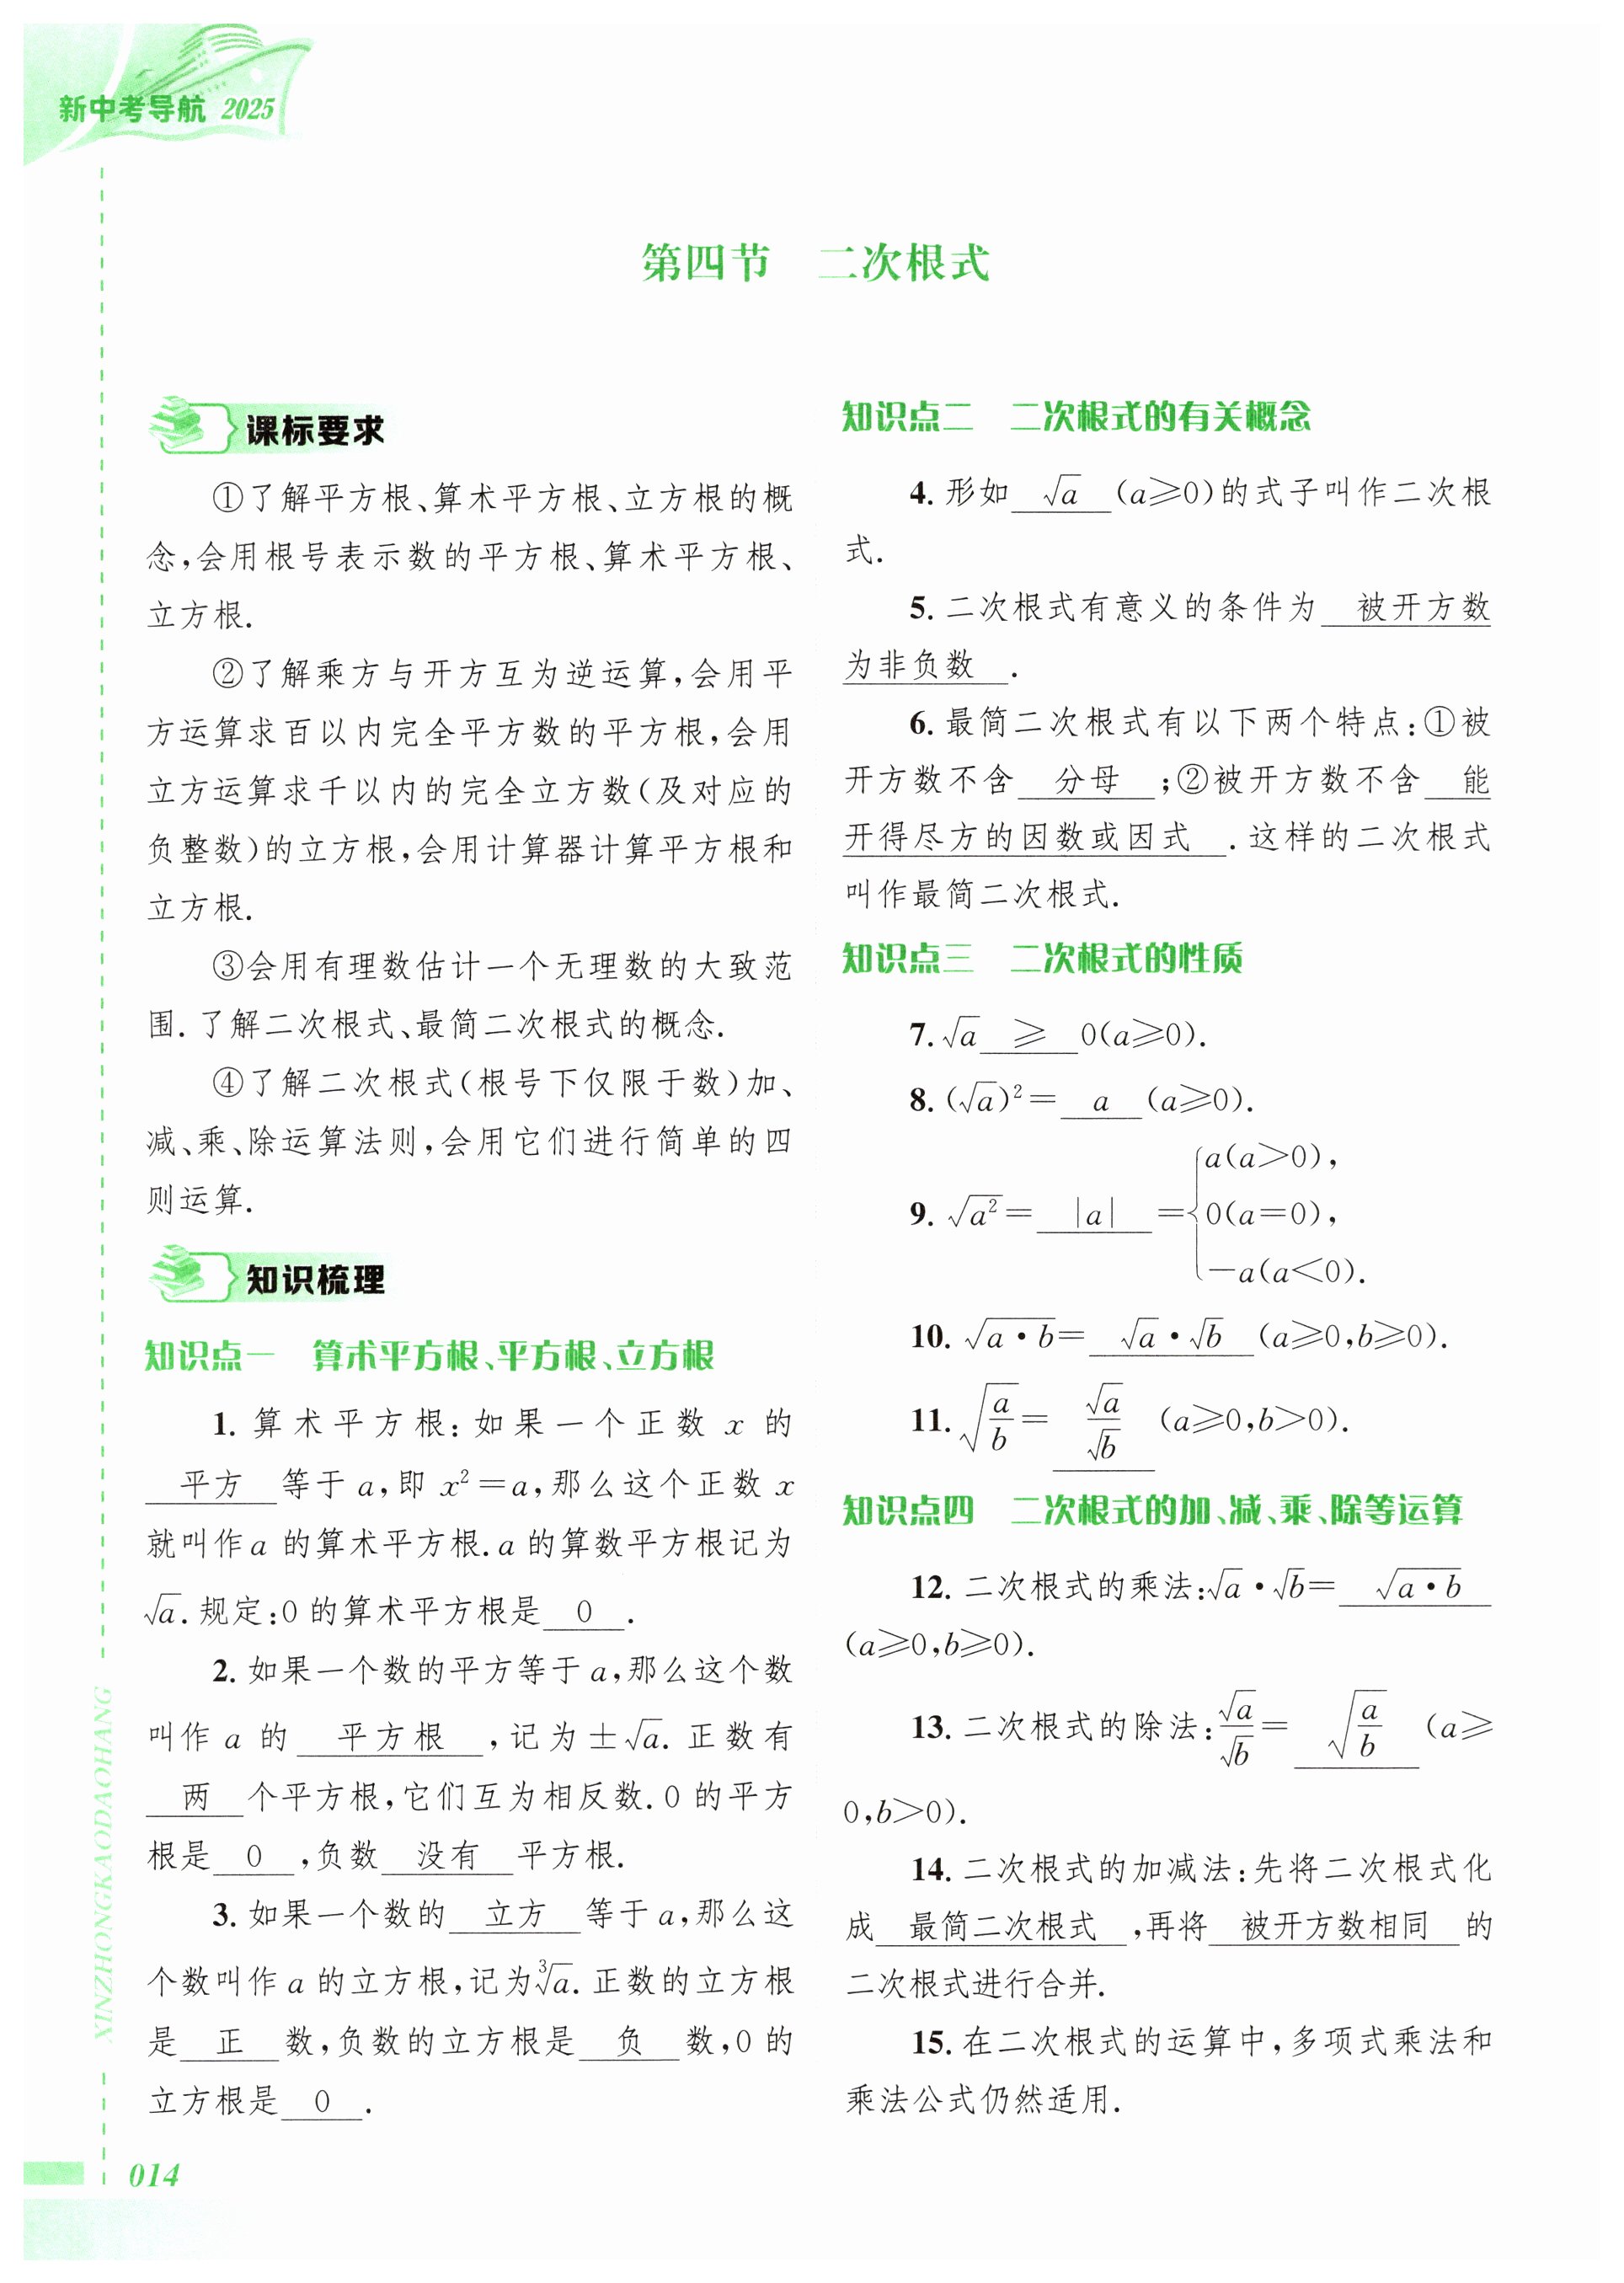 新中考导航 2025
第四节 二次根式
课标要求
①了解平方根、算术平方根、立方根的概
念,会用根号表示数的平方根、算术平方根、
立方根.
②了解乘方与开方互为逆运算,会用平
方运算求百以内完全平方数的平方根,会用
立方运算求千以内的完全立方数(及对应的
负整数)的立方根,会用计算器计算平方根和
立方根.
③会用有理数估计一个无理数的大致范
围.了解二次根式、最简二次根式的概念.
④了解二次根式(根号下仅限于数)加、
减、乘、除运算法则,会用它们进行简单的四
则运算.
知识梳理
知识点一 算术平方根、平方根、立方根
1. 算术平方根:如果一个正数 x 的
平方 等于 a,即 x²=a,那么这个正数 x
就叫作 a 的算术平方根.a 的算数平方根记为
√a.规定:0 的算术平方根是 0 .
2. 如果一个数的平方等于 a,那么这个数
叫作 a 的 平方根 ,记为±√a.正数有
两 个平方根,它们互为相反数.0 的平方
根是 0 ,负数 没有 平方根.
3. 如果一个数的 立方 等于 a,那么这
个数叫作 a 的立方根,记为∛a.正数的立方根
是 正 数,负数的立方根是 负 数,0 的
立方根是 0 .
知识点二 二次根式的有关概念
4. 形如 √a (a≥0)的式子叫作二次根
式.
5. 二次根式有意义的条件为 被开方数
为非负数 .
6. 最简二次根式有以下两个特点:①被
开方数不含 分母 ;②被开方数不含 能
开得尽方的因数或因式 .这样的二次根式
叫作最简二次根式.
知识点三 二次根式的性质
7. √a ≥ 0(a≥0).
8. (√a)²= a (a≥0).
9. √(a²)= |a| ={a(a>0),
0(a=0),
-a(a<0).
10. √(a·b)= √a·√b (a≥0,b≥0).
11. √(a/b)= √a/√b (a≥0,b>0).
知识点四 二次根式的加、减、乘、除等运算
12. 二次根式的乘法:√a·√b= √(a·b)
(a≥0,b≥0).
13. 二次根式的除法:√a/√b= √(a/b) (a≥
0,b>0).
14. 二次根式的加减法:先将二次根式化
成 最简二次根式 ,再将 被开方数相同 的
二次根式进行合并.
15. 在二次根式的运算中,多项式乘法和
乘法公式仍然适用.
XINZHONGKAODAOHANG
014